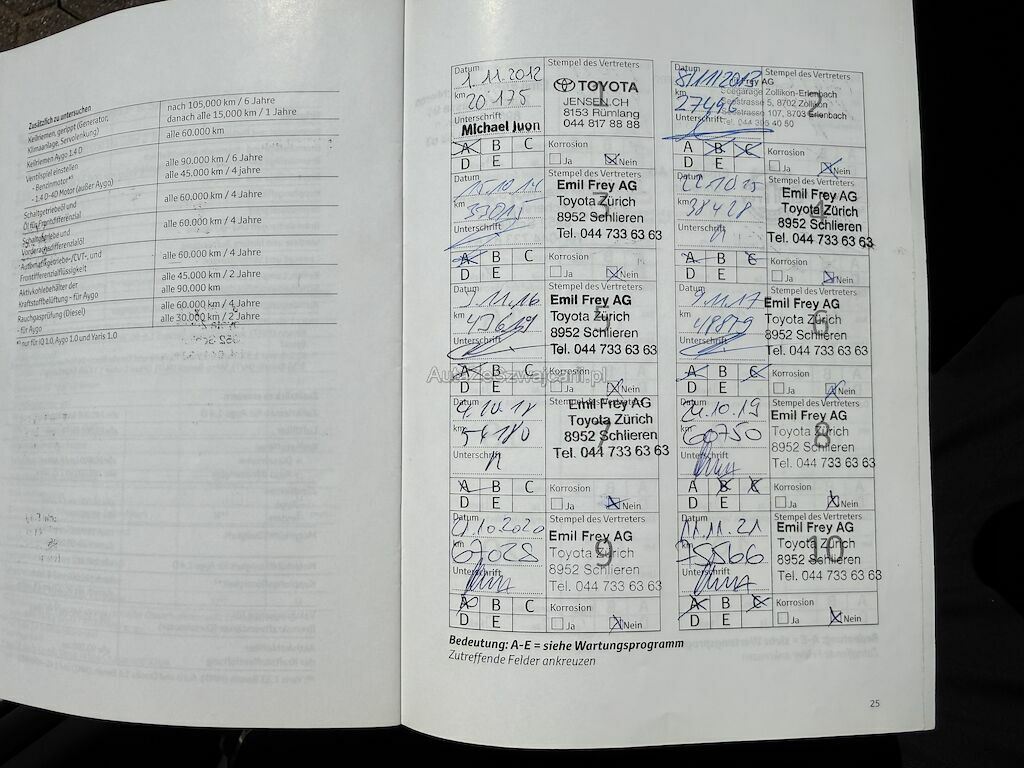 Zusätzlich zu untersuchen
Keilriemen, gerippt (Generator,
Klimaanlage, Servolenkung)
nach 105,000 km / 6 Jahre
danach alle 15,000 km / 1 Jahre
Keilriemen Aygo 1.4 D
alle 60.000 km
Ventilspiel einstellen
- Benzinmotor*⁾
- 1.4 D-4D Motor (außer Aygo)
alle 90.000 km / 6 Jahre
alle 45.000 km / 4 Jahre
Schaltgetriebeöl und
Öl für Frontdifferenzial
alle 60.000 km / 4 Jahre
Schaltgetriebe und
Vorderachsdifferenzialöl
alle 60.000 km / 4 Jahre
Automatikgetriebe-/CVT-, und
Frontdifferenzialflüssigkeit
alle 60.000 km / 4 Jahre
Aktivkohlebehälter der
Kraftstoffbelüftung - für Aygo
alle 45.000 km / 2 Jahre
alle 90.000 km
Rauchgasprüfung (Diesel)
- für Aygo
alle 60.000 km / 4 Jahre
alle 30.000 km / 2 Jahre
*⁾ nur für iQ 1.0, Aygo 1.0 und Yaris 1.0
Datum
1.11.2012
km
20 175
Unterschrift
Michael Juon
Stempel des Vertreters
1
TOYOTA
JENSEN.CH
8153 Rümlang
044 817 88 88
A B C
D E
Korrosion
Ja Nein
Datum
km
27496
Unterschrift
Stempel des Vertreters
2
Frey AG
Seegarage Zollikon-Erlenbach
Seestrasse 5, 8702 Zollikon
Seestrasse 107, 8703 Erlenbach
Tel. 044 396 40 50
A B C
D E
Korrosion
Ja Nein
Datum
km
33015
Unterschrift
3
Emil Frey AG
Toyota Zürich
8952 Schlieren
Tel. 044 733 63 63
A B C
D E
Korrosion
Ja Nein
Datum
22.10.15
km
38428
Unterschrift
Stempel des Vertreters
4
Emil Frey AG
Toyota Zürich
8952 Schlieren
Tel. 044 733 63 63
A B C
D E
Korrosion
Ja Nein
Datum
km
Unterschrift
Stempel des Vertreters
5
Emil Frey AG
Toyota Zürich
8952 Schlieren
Tel. 044 733 63 63
A B C
D E
Korrosion
Ja Nein
Datum
km
48879
Unterschrift
Stempel des Vertreters
6
Emil Frey AG
Toyota Zürich
8952 Schlieren
Tel. 044 733 63 63
A B C
D E
Korrosion
Ja Nein
Datum
9.10.18
km
54180
Unterschrift
Stempel des Vertreters
7
Emil Frey AG
Toyota Zürich
8952 Schlieren
Tel. 044 733 63 63
A B C
D E
Korrosion
Ja Nein
Datum
24.10.19
km
60750
Unterschrift
Stempel des Vertreters
8
Emil Frey AG
Toyota Zürich
8952 Schlieren
Tel. 044 733 63 63
A B C
D E
Korrosion
Ja Nein
Datum
km
67028
Unterschrift
Stempel des Vertreters
9
Emil Frey AG
Toyota Zürich
8952 Schlieren
Tel. 044 733 63 63
A B C
D E
Korrosion
Ja Nein
Datum
11.11.21
km
75566
Unterschrift
Stempel des Vertreters
10
Emil Frey AG
Toyota Zürich
8952 Schlieren
Tel. 044 733 63 63
A B C
D E
Korrosion
Ja Nein
Bedeutung: A-E = siehe Wartungsprogramm
Zutreffende Felder ankreuzen
25
AutazeSzwajcarii.pl